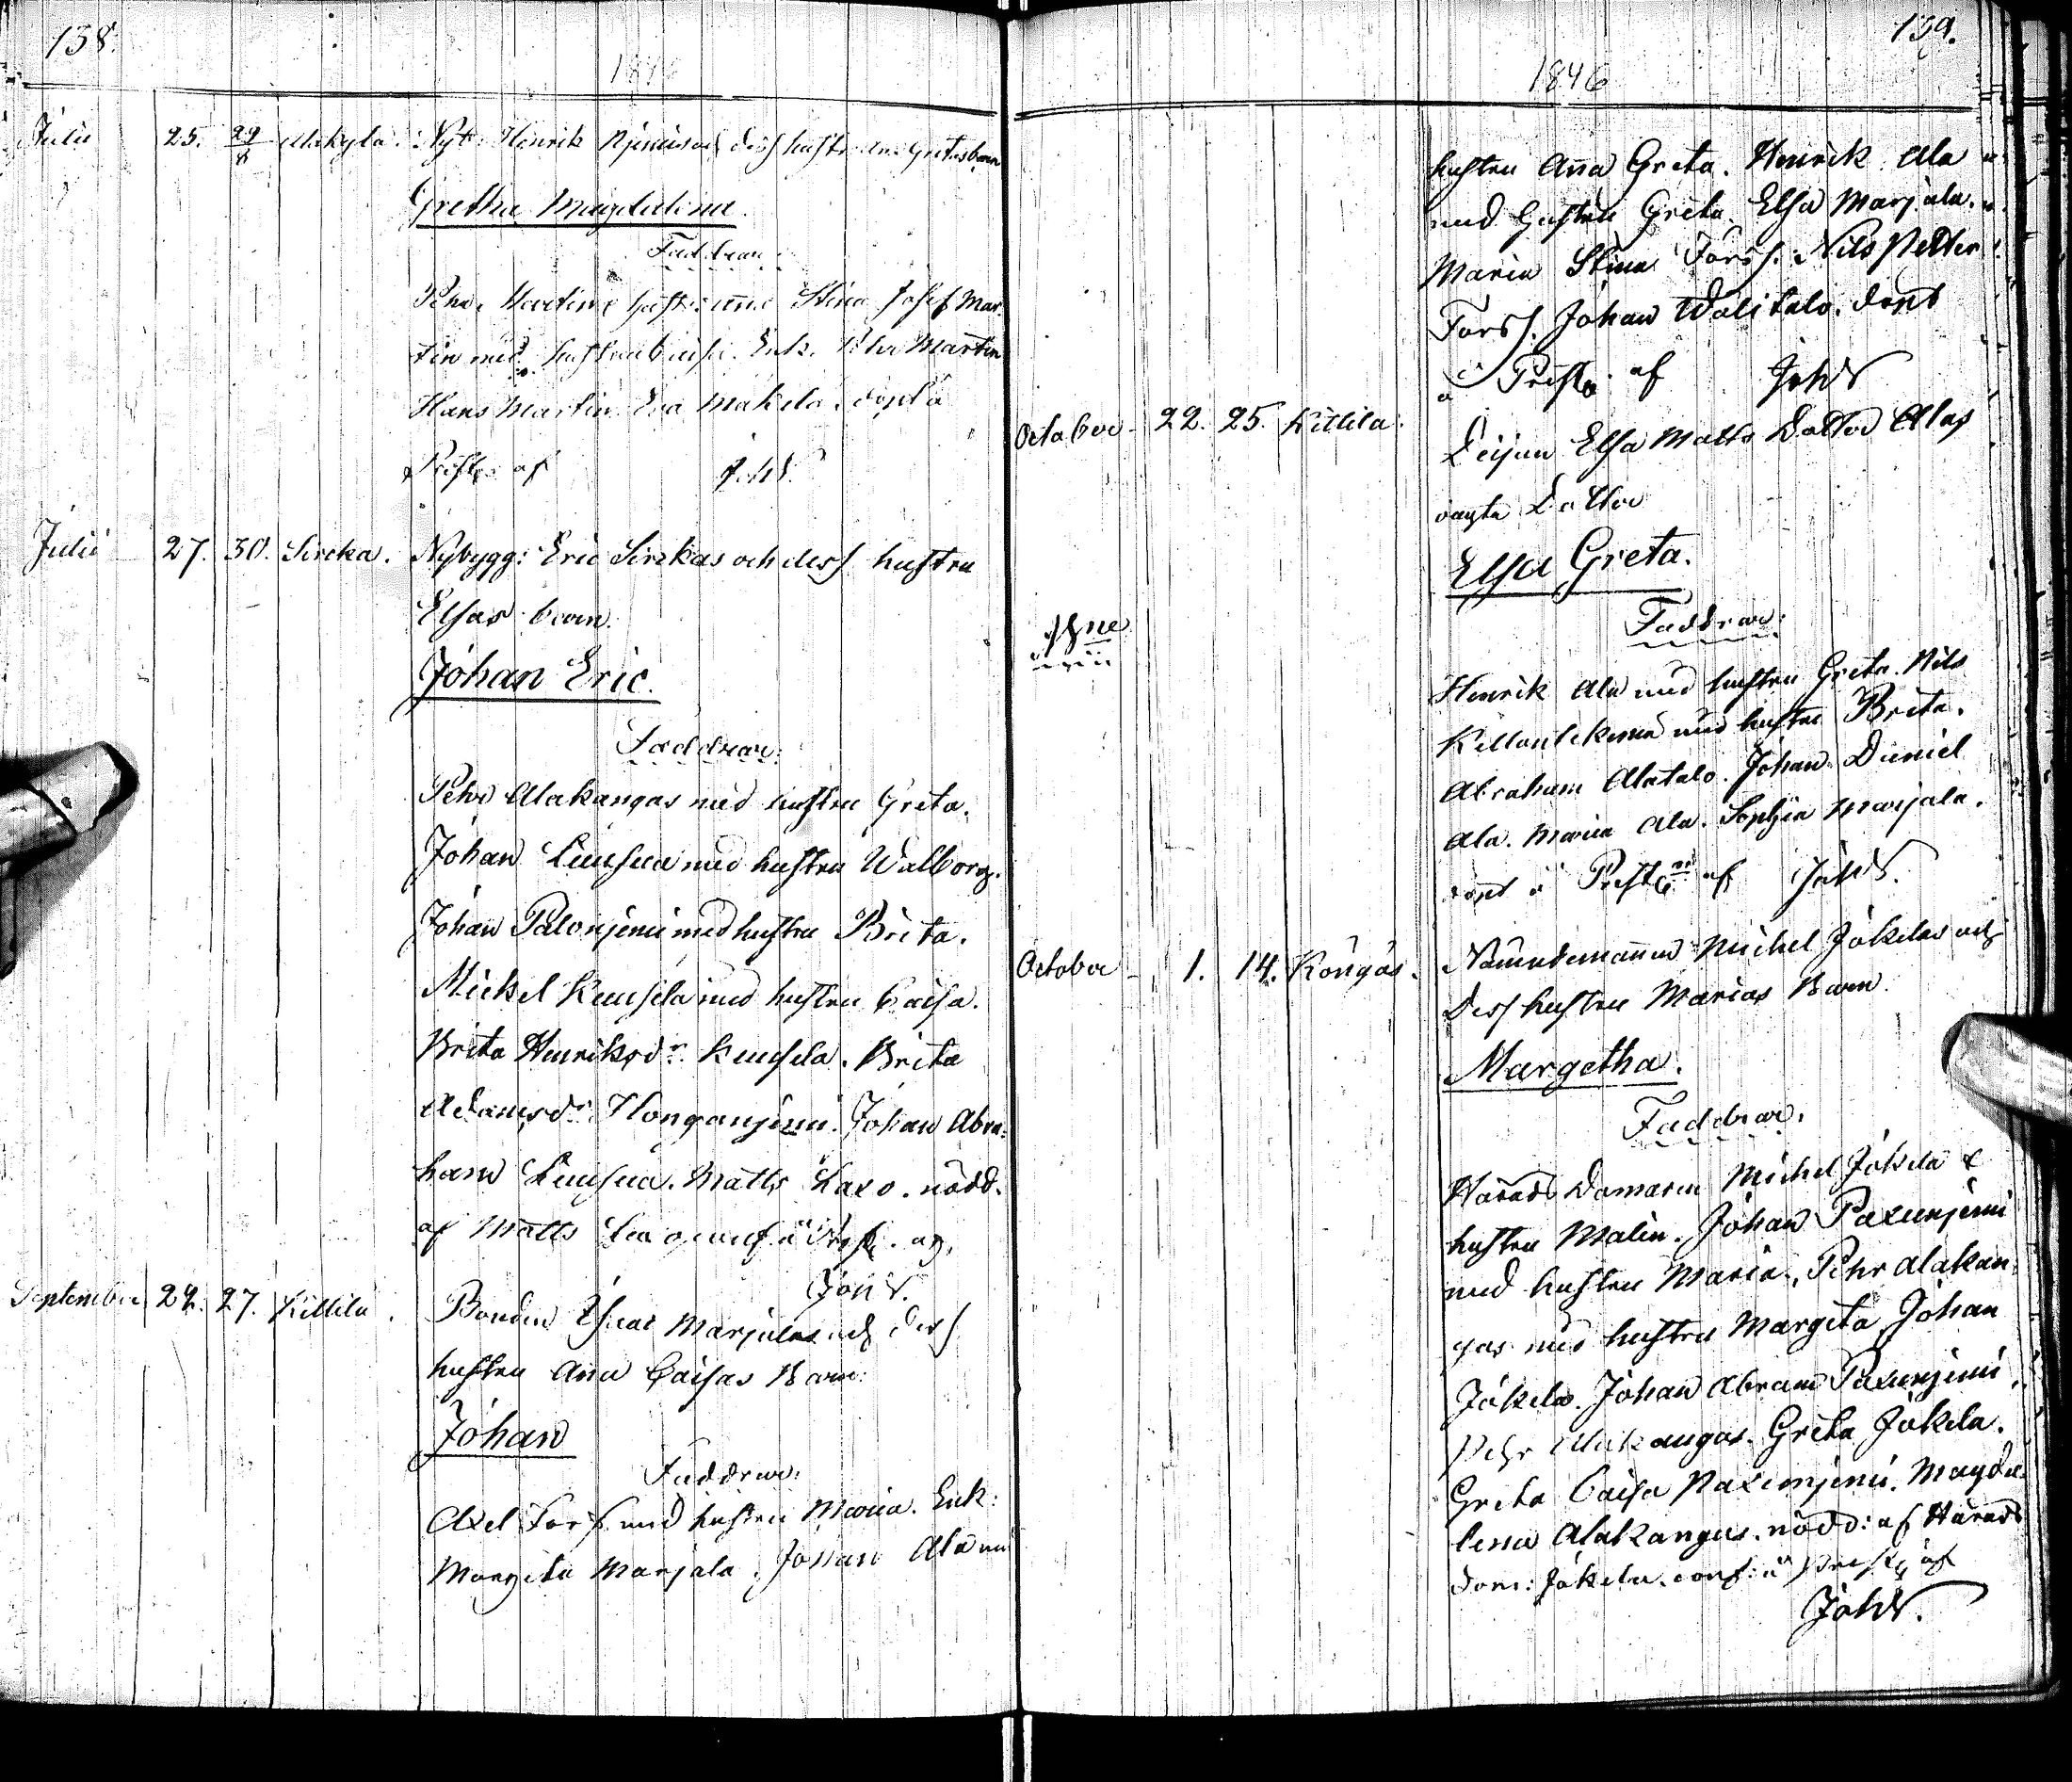 138.
1846
Julii 25. 29/8 Alakylä. Nyb: Henrik Njemis och dess hustr Ann Gretas barn
Gretha Magdalena
Faddrar:
Pehr Martin hust: Anna Stina Josef Mar
tin med hustru Caisa. Enk. Martin
Hans Martin Eva Makela. döpt å
Prestg: af Joh W.
Julii 27. 30. Sircka. Nybygg: Eric Sirckas och dess hustru
Elsas barn.
Johan Eric.
Faddrar:
Pehr Alakangas med hustru Greta.
Johan Liusua med hustru Walborg.
Johan Palonjemi med hustru Brita.
Mickel Keusela med hustru Caisa.
Brita Henriksdr. Keusela. Brita
Adamsdr. Honganjemi. Johan Abra
ham Liusua. Matts Laxo. nödd.
af Matts å af
Joh W.
September 24. 27. Kittilä. Bonden Isaac Marjalas och dess
hustru Anna Caisas Barn:
Johan
Faddrar:
Axel Forss med hustru Maria. Enk:
Margeta Marjala. Johan Ala med
139.
1846
hustru Anna Greta. Henrik Ala
med hustru Greta. Elsa Marjala.
Maria Stina Forss. Nils Petter
Forss. Johan Walitalo. döpt
å Prestg: af Joh W
October 22. 25. Kittilä. Pigan Elsa Matts Dotter Alas
oägta Dotter
Elsa Greta.
Faddrar:
Henrik Ala med hustru Greta. Nils
med hustru Brita.
Abraham Alatalo. Johan Daniel
Ala. Maria Ala. Sophia Marjala.
döpt å Prestg af Joh W.
October 1. 14. Köngäs. Nämndemannen Michel Jokelas och
Dess hustru Marias Barn.
Margetha.
Faddrar.
Härads Domaren Michel Jokela &
hustru Malin. Johan Paxunjemi
med hustru Maria. Pehr Alakan
gas med hustru Margeta Johan
Jokela. Johan Abram Paxunjemi
Pehr Alakangas. Greta Jokela.
Greta Caisa Paxunjemi. Magda
lena Alakangas. nödd: af Härads
Dom: Jokela. conf: å Prestg af
Joh W.